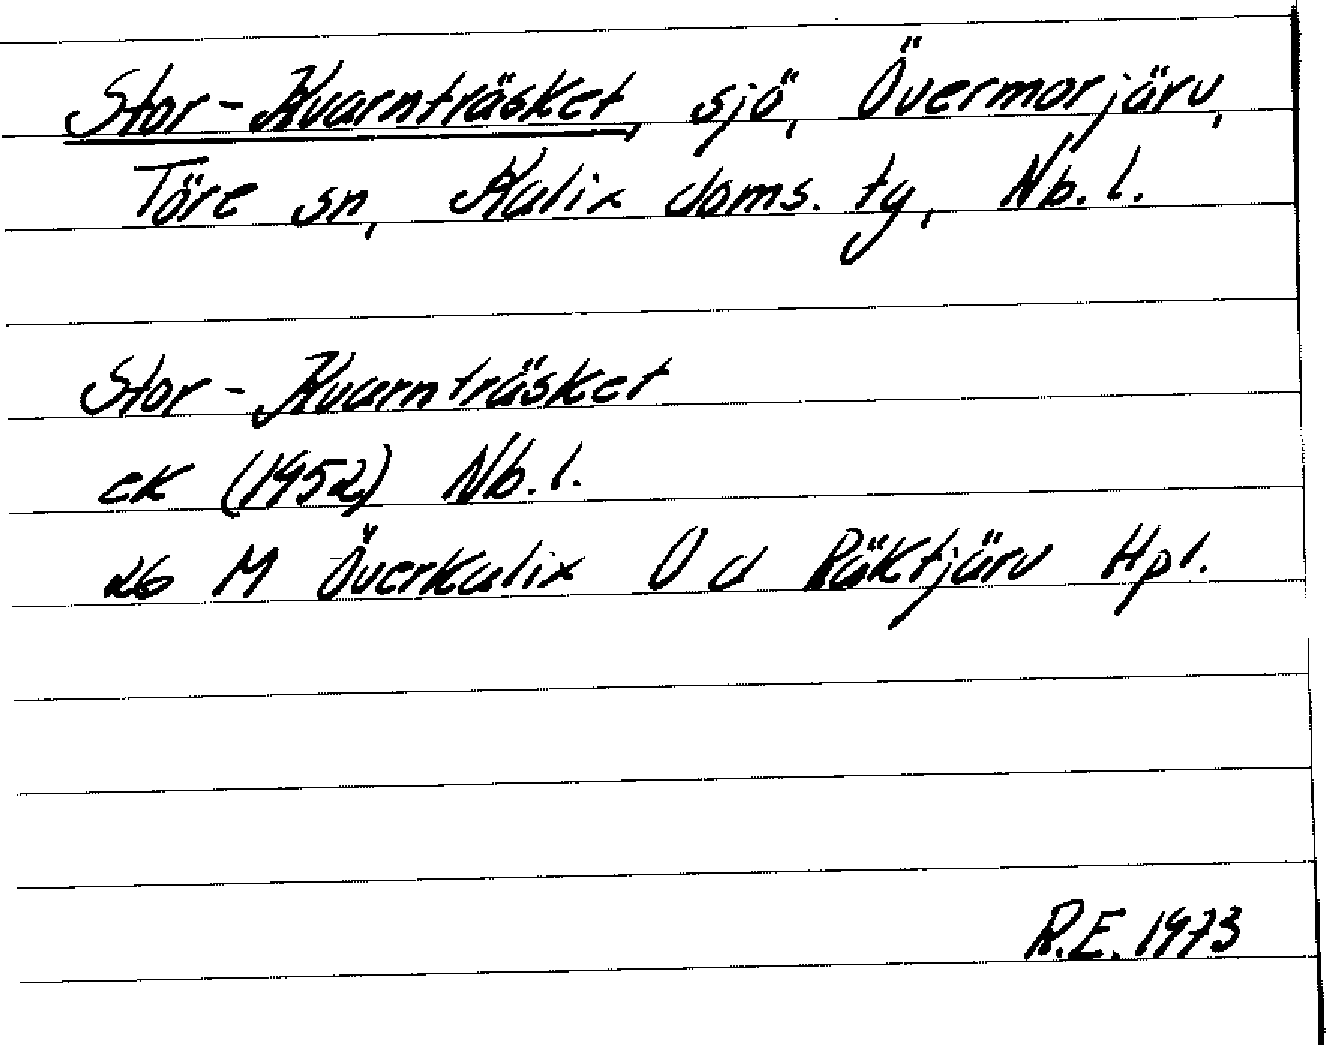 Stor-Kvarnträsket, sjö, Övermorjärv,
Töre sn, Kalix doms. tg, Nb. l.
Stor-Kvarnträsket
ek (1952) Nb. l.
26 M Överkalix O d Räktjärv Hpl.
R.E. 1973